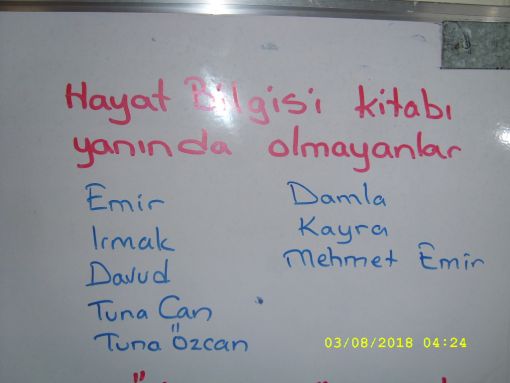 Hayat Bilgisi kitabı
yanında olmayanlar
Emir
Irmak
Davud
Tuna Can
Tuna Özcan
Damla
Kayra
Mehmet Emir
03/08/2018 04:24